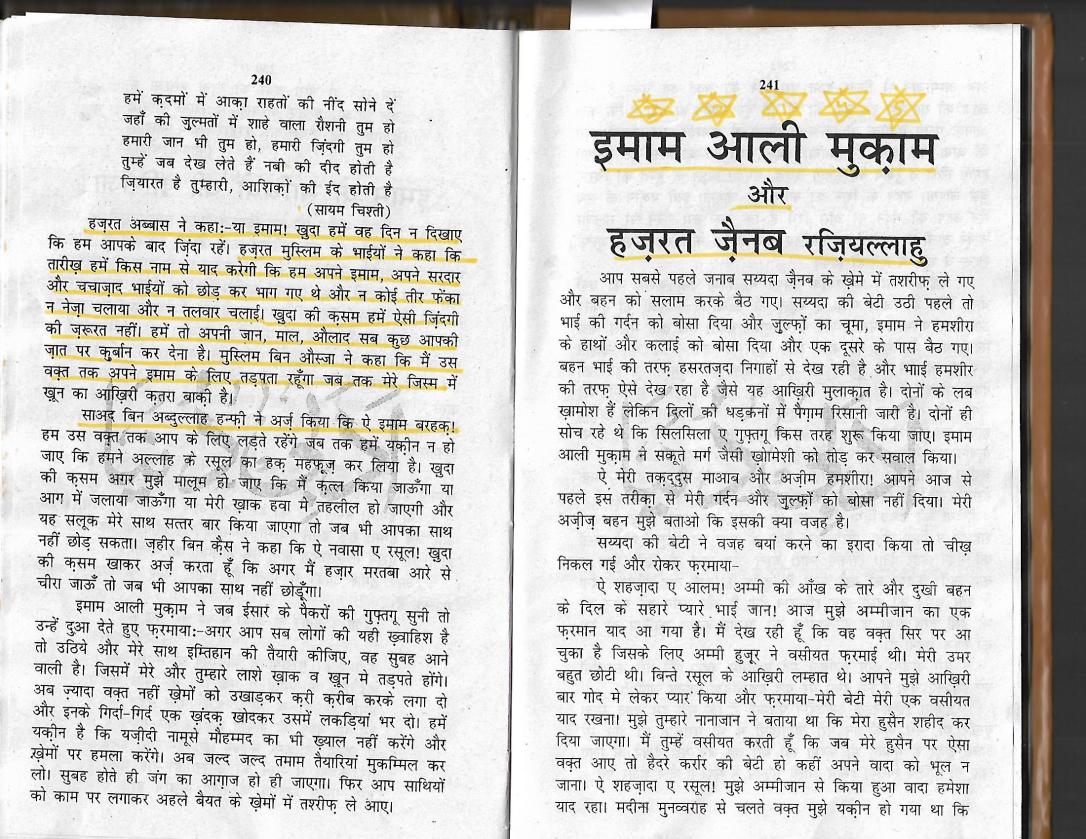 240
हमें क़दमों में आक़ा राहतों की नींद सोने दें
जहाँ की ज़ुल्मतों में शाहे वाला रौशनी तुम हो
हमारी जान भी तुम हो, हमारी ज़िंदगी तुम हो
तुम्हें जब देख लेते हैं नबी की दीद होती है
ज़ियारत है तुम्हारी, आशिक़ों की ईद होती है
(सायम चिश्ती)
हज़रत अब्बास ने कहा:-या इमाम! खुदा हमें वह दिन न दिखाए
कि हम आपके बाद ज़िंदा रहें। हज़रत मुस्लिम के भाईयों ने कहा कि
तारीख़ हमें किस नाम से याद करेगी कि हम अपने इमाम, अपने सरदार
और चचाज़ाद भाईयों को छोड़ कर भाग गए थे और न कोई तीर फेंका
न नेज़ा चलाया और न तलवार चलाई। खुदा की क़सम हमें ऐसी ज़िंदगी
की ज़रूरत नहीं। हमें तो अपनी जान, माल, औलाद सब कुछ आपकी
ज़ात पर कुर्बान कर देना है। मुस्लिम बिन औस्जा ने कहा कि मैं उस
वक़्त तक अपने इमाम के लिए तड़पता रहूँगा जब तक मेरे जिस्म में
खून का आख़िरी क़तरा बाक़ी है।
साअद बिन अब्दुल्लाह हन्फ़ी ने अर्ज़ किया कि ऐ इमाम बरहक़!
हम उस वक़्त तक आप के लिए लड़ते रहेंगे जब तक हमें यक़ीन न हो
जाए कि हमने अल्लाह के रसूल का हक़ महफूज़ कर लिया है। खुदा
की क़सम अगर मुझे मालूम हो जाए कि मैं क़त्ल किया जाऊँगा या
आग में जलाया जाऊँगा या मेरी ख़ाक हवा में तहलील हो जाएगी और
यह सलूक मेरे साथ सत्तर बार किया जाएगा तो जब भी आपका साथ
नहीं छोड़ सकता। ज़हीर बिन क़ैस ने कहा कि ऐ नवासा ए रसूल! खुदा
की क़सम खाकर अर्ज़ करता हूँ कि अगर मैं हज़ार मरतबा आरे से
चीरा जाऊँ तो जब भी आपका साथ नहीं छोड़ूँगा।
इमाम आली मुक़ाम ने जब ईसार के पैकरों की गुफ़्तगू सुनी तो
उन्हें दुआ देते हुए फ़रमाया:-अगर आप सब लोगों की यही ख़्वाहिश है
तो उठिये और मेरे साथ इम्तिहान की तैयारी कीजिए, वह सुबह आने
वाली है। जिसमें मेरे और तुम्हारे लाशे ख़ाक व खून मे तड़पते होंगे।
अब ज़्यादा वक़्त नहीं ख़ेमों को उखाड़कर क़री क़रीब करके लगा दो
और इनके गिर्दा-गिर्द एक ख़ंदक़ खोदकर उसमें लकड़ियां भर दो। हमें
यक़ीन है कि यज़ीदी नामूसे मौहम्मद का भी ख़्याल नहीं करेंगे और
ख़ेमों पर हमला करेंगे। अब जल्द जल्द तमाम तैयारियां मुकम्मिल कर
लो। सुबह होते ही जंग का आगाज़ हो ही जाएगा। फिर आप साथियों
को काम पर लगाकर अहले बैयत के ख़ेमों में तशरीफ़ ले आए।
241
इमाम आली मुक़ाम
और
हज़रत ज़ैनब रज़ियल्लाहु
आप सबसे पहले जनाब सय्यदा ज़ैनब के ख़ेमे में तशरीफ़ ले गए
और बहन को सलाम करके बैठ गए। सय्यदा की बेटी उठी पहले तो
भाई की गर्दन को बोसा दिया और ज़ुल्फ़ों का चूमा, इमाम ने हमशीरा
के हाथों और कलाई को बोसा दिया और एक दूसरे के पास बैठ गए।
बहन भाई की तरफ़ हसरतज़दा निगाहों से देख रही है और भााई हमशीर
की तरफ़ ऐसे देख रहा है जैसे यह आख़िरी मुलाक़ात है। दोनों के लब
ख़ामोश हैं लेकिन दिलों की धड़कनों में पैग़ाम रिसानी जारी है। दोनों ही
सोच रहे थे कि सिलसिला ए गुफ़्तगू किस तरह शुरू किया जाए। इमाम
आली मुक़ाम ने सकूते मर्ग जैसी ख़ामेशी को तोड़ कर सवाल किया।
ऐ मेरी तक़द्दुस माआब और अज़ीम हमशीरा! आपने आज से
पहले इस तरीक़ा से मेरी गर्दन और ज़ुल्फ़ों को बोसा नहीं दिया। मेरी
अज़ीज़ बहन मुझे बताओ कि इसकी क्या वजह है।
सय्यदा की बेटी ने वजह बयां करने का इरादा किया तो चीख़
निकल गई और रोकर फ़रमाया-
ऐ शहज़ादा ए आलम! अम्मी की आँख के तारे और दुखी बहन
के दिल के सहारे प्यारे भाई जान! आज मुझे अम्मीजान का एक
फ़रमान याद आ गया है। मैं देख रही हूँ कि वह वक़्त सिर पर आ
चुका है जिसके लिए अम्मी हुज़ूर ने वसीयत फ़रमाई थी। मेरी उमर
बहुत छोटी थी। बिन्ते रसूल के आख़िरी लम्हात थे। आपने मुझे आख़िरी
बार गोद मे लेकर प्यार किया और फ़रमाया-मेरी बेटी मेरी एक वसीयत
याद रखना। मुझे तुम्हारे नानाजान ने बताया था कि मेरा हुसैन शहीद कर
दिया जाएगा। मैं तुम्हें वसीयत करती हूँ कि जब मेरे हुसैन पर ऐसा
वक़्त आए तो हैदरे कर्रार की बेटी हो कहीं अपने वादा को भूल न
जाना। ऐ शहज़ादा ए रसूल! मुझे अम्मीजान से किया हुआ वादा हमेशा
याद रहा। मदीना मुनव्वराह से चलते वक़्त मुझे यक़ीन हो गया था कि